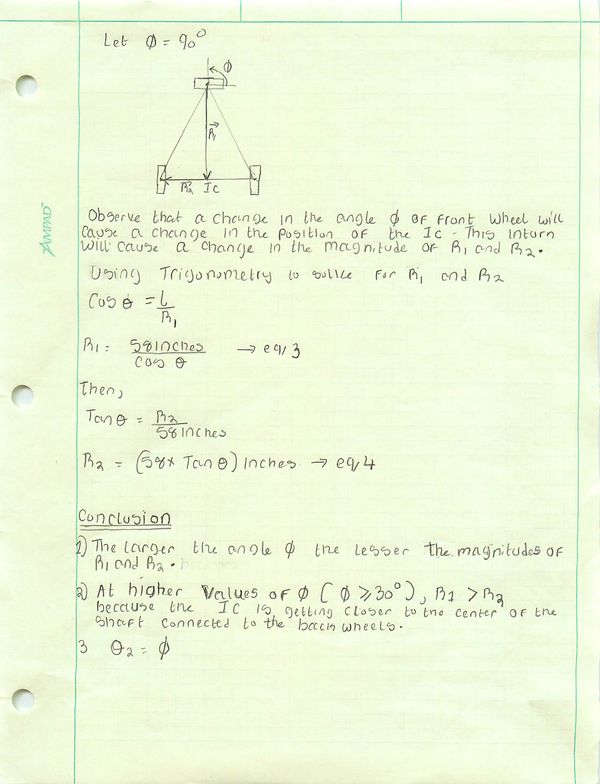 Let φ = 90°
φ
R₁
R₂ Ic
AMPAD
Observe that a change in the angle φ of front wheel will
cause a change in the position of the Ic. This inturn
will cause a change in the magnitude of R₁ and R₂.
Using Trigonometry to solve for R₁ and R₂
Cos θ = L/R₁
R₁ = 58 inches / cos θ → eq/3
Then,
Tan θ = R₂ / 58 inches
R₂ = (58 x Tan θ) inches → eq/4
Conclusion
1) The larger the angle φ the lesser the magnitudes of
R₁ and R₂.
2) At higher values of φ (φ ⩾ 30°), R1 > R₂
because the IC is getting closer to the center of the
shaft connected to the back wheels.
3 θ₂ = φ